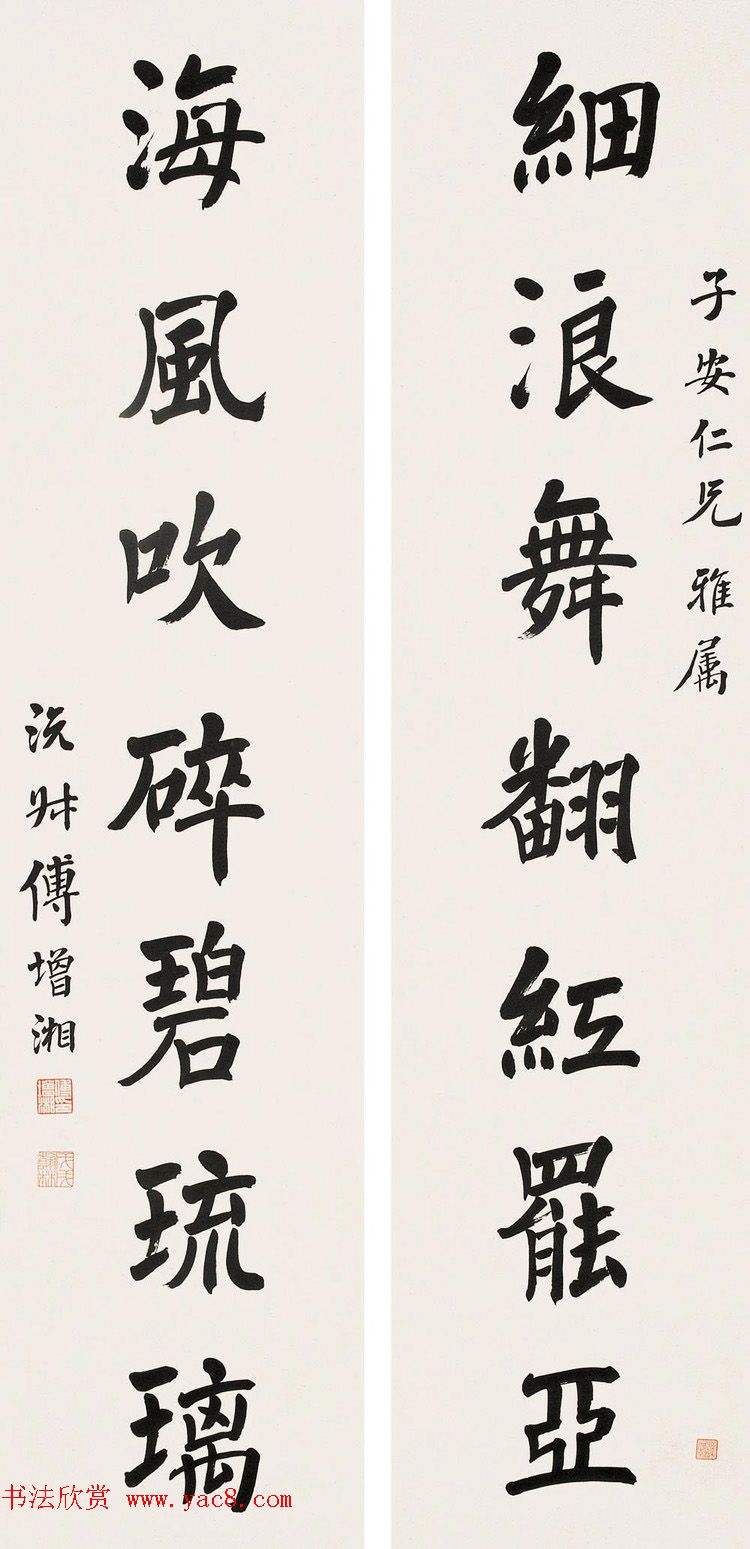 子安仁兄雅属
細浪舞翻紅罷亞
海風吹碎碧琉璃
沅叔傅增湘
书法欣赏 www.yac8.com